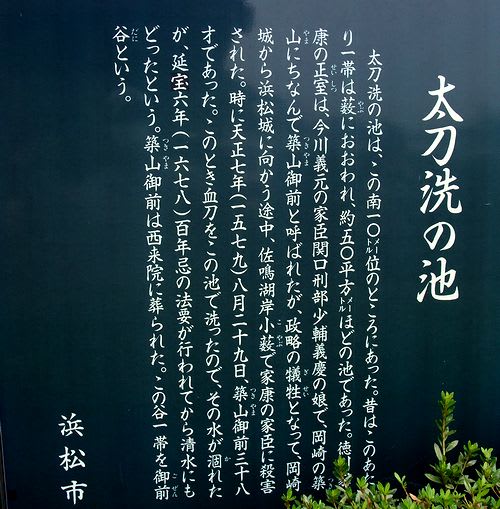 太刀洗の池
太刀洗の池は、この南一〇メートル位のところにあった。昔はこのあた
り一帯は薮におおわれ、約五〇平方メートルほどの池であった。徳川
康の正室は、今川義元の家臣関口刑部少輔義慶の娘で、岡崎の築
山にちなんで築山御前と呼ばれたが、政略の犠牲となって、岡崎
城から浜松城に向かう途中、佐鳴湖岸小薮で家康の家臣に殺害
された。時に天正七年(一五七九)八月二十九日、築山御前三十八
才であった。このとき血刀をこの池で洗ったので、その水が涸れた
が、延宝六年(一六七八)百年忌の法要が行われてから清水にも
どったという。築山御前は西来院に葬られた。この谷一帯を御前
谷という。
浜松市